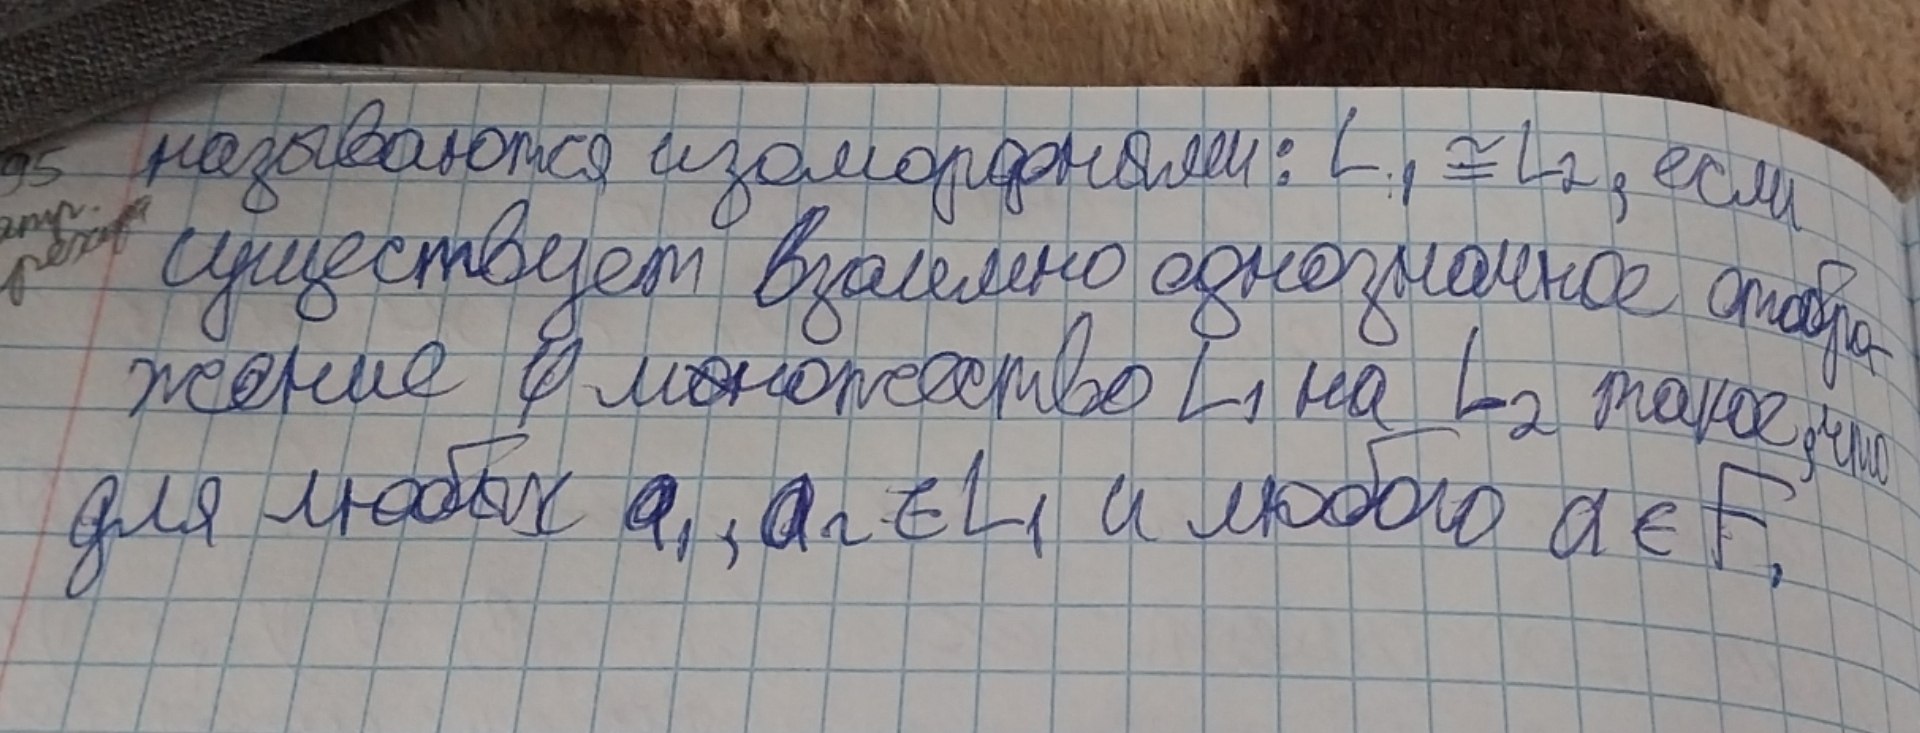 называются изоморфными: L₁ ≅ L₂, если
существует взаимно однозначное отобра-
жение φ множество L₁ на L₂ такое, что
для любых a₁, a₂ ∈ L₁ и любого α ∈ F,
95